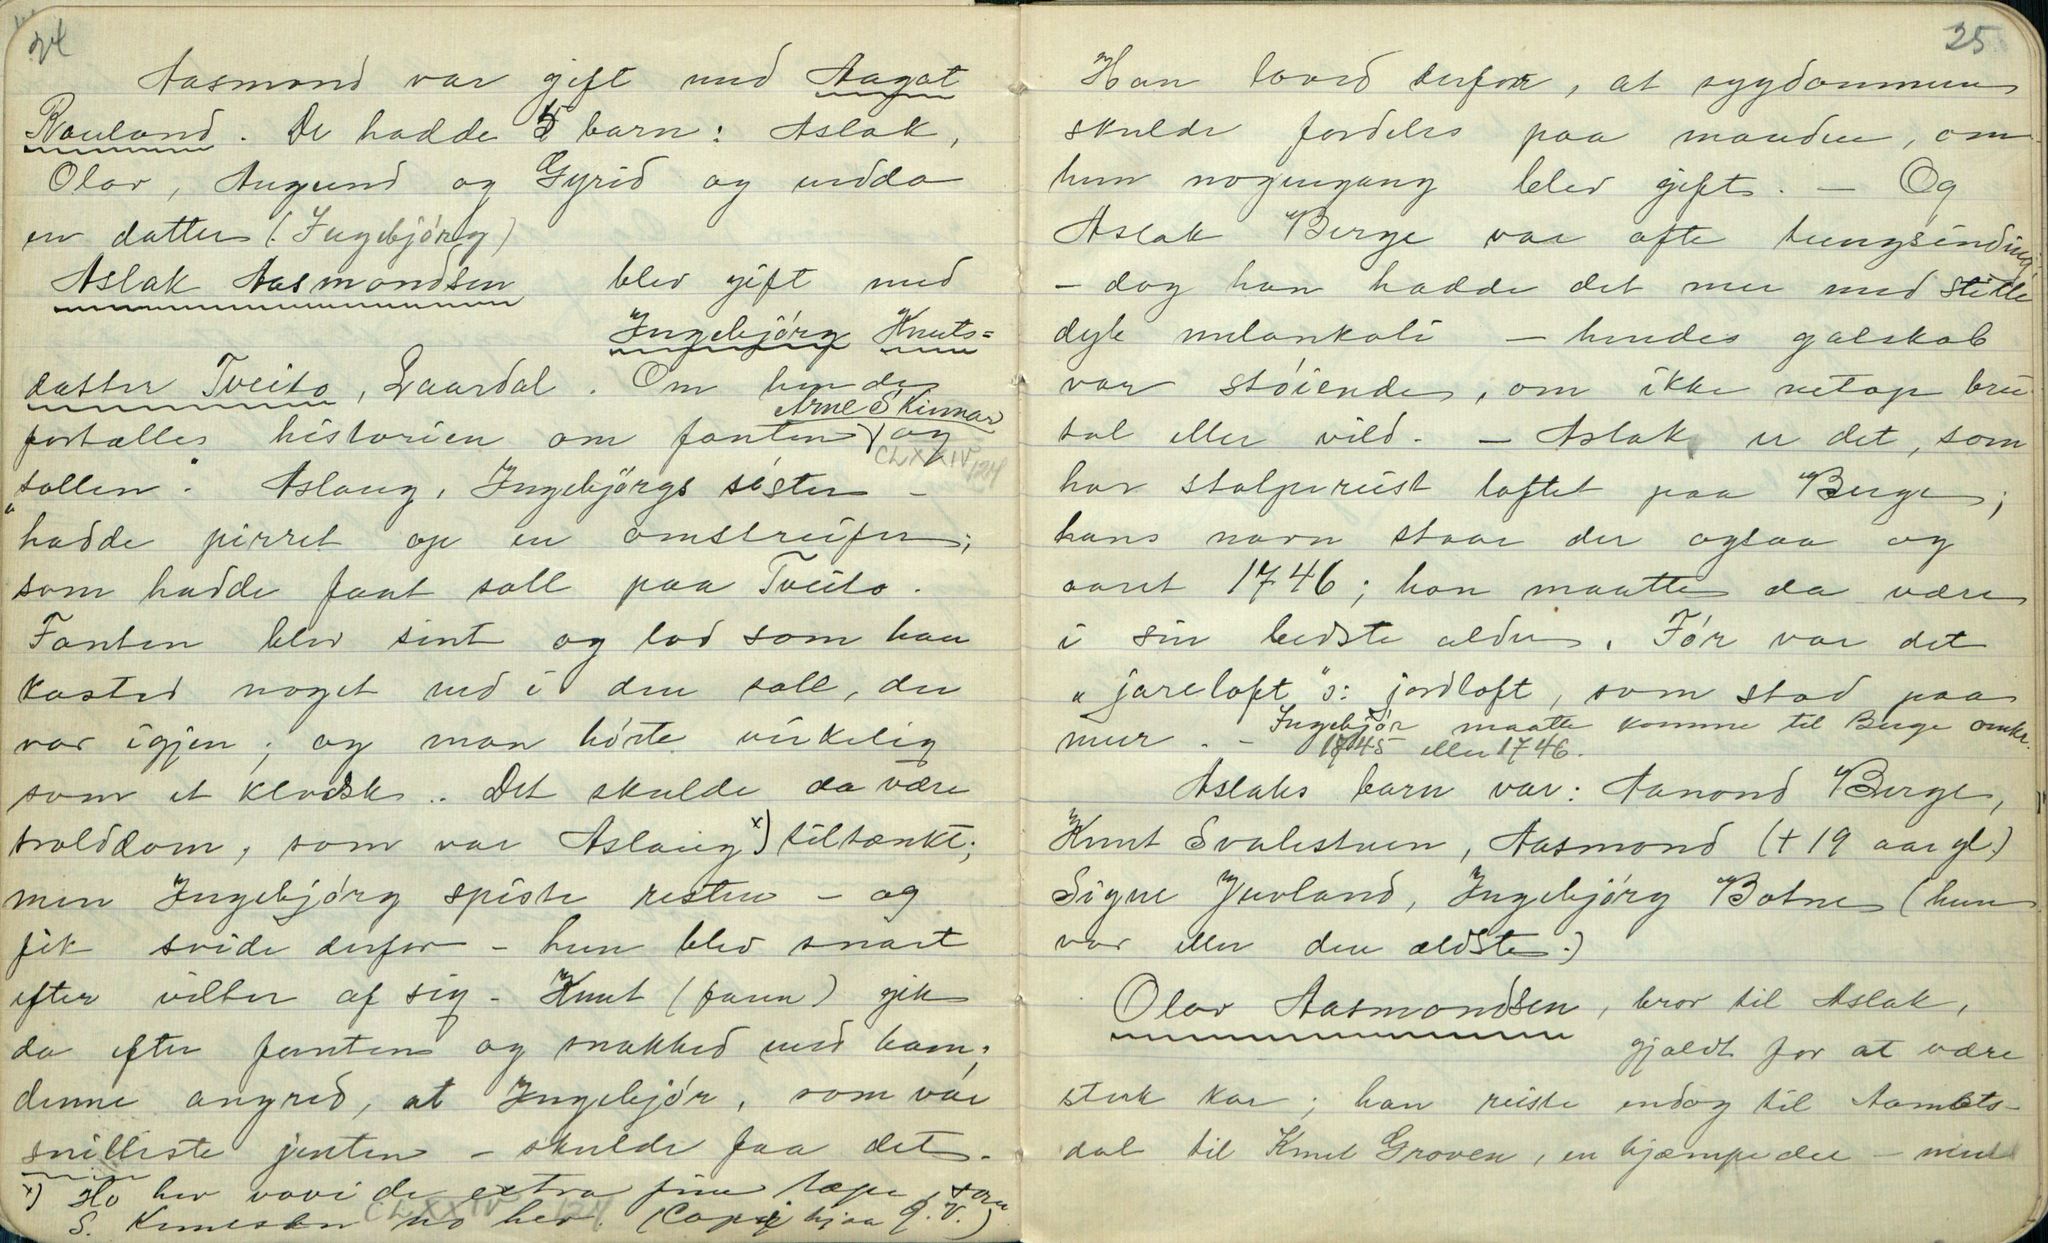 24
Aasmond var gift med Aagot
Rauland. De hadde 5 barn: Aslak,
Olav, Augund og Gyrid og endda
en datter (Ingebjørg)
Aslak Aasmondsen blev gift med
Ingebjørg Knuts-
datter Tveito, Laardal. Om hende
fortælles historien om fanten Arne Skinnar og
CLXXIV 124
"sollen". Aslaug, Ingebjørgs søster -
hadde pirret op en omstreifer,
som hadde faat soll paa Tveito.
Fanten blev sint og lod som han
kasted noget ned i den soll, der
var igjen; og man hørte virkelig
som et klvask. Det skulde da være
trolddom, som var Aslaug x) tiltænkt;
men Ingebjørg spiste resten - og
fik svide derfor - hun blev snart
efter vilter af sig - Knut (faren) gik
da efter fanten og snakked med ham;
denne angred, at Ingebjør, som var
snilleste jenten - skulde faa det.
x) Ho hev vovi de extra fine tæpe, som
S. Knutson no hev. (Copi hjaa R.V.)
CLXXIV 124
25
Han loved derfor, at sygdommen
skulde fordeles paa manden, om
hun nogengang blev gift. - Og
Aslak Berge var ofte tungsindig
- dog han hadde det mer med stille
dyb melankoli - hendes galskab
var støiende, om ikke netop bru-
tal eller vild. - Aslak er det, som
har stolpereist loftet paa Berge;
hans navn staar der ogsaa og
aaret 1746; han maatte da være
i sin bedste alder. Før var det
"jareloft" ɔ: jordloft, som stod paa
mur. - Ingebjør maatte komme til Berge omkr.
1745 eller 1746.
Aslaks barn var: Aanond Berge,
Knut Svalestuen, Aasmond (+ 19 aar gl.)
Signe Juvland, Ingebjørg Botne (hun
var eller den ældste.)
Olav Aasmondsen, bror til Aslak,
gjaldt for at være
sterk kar; han reiste endog til Aamots-
dal til Knut Groven, en kjæmpe der - men